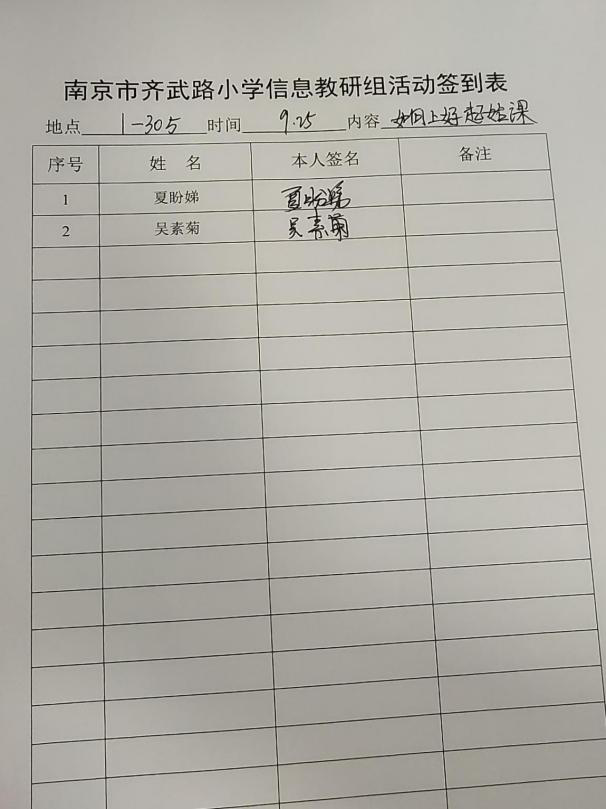 南京市齐武路小学信息教研组活动签到表
地点 1-305 时间 9.25 内容 如何上好起始课
序号 姓 名 本人签名 备注
1 夏盼娣 夏盼娣
2 吴素菊 吴素菊